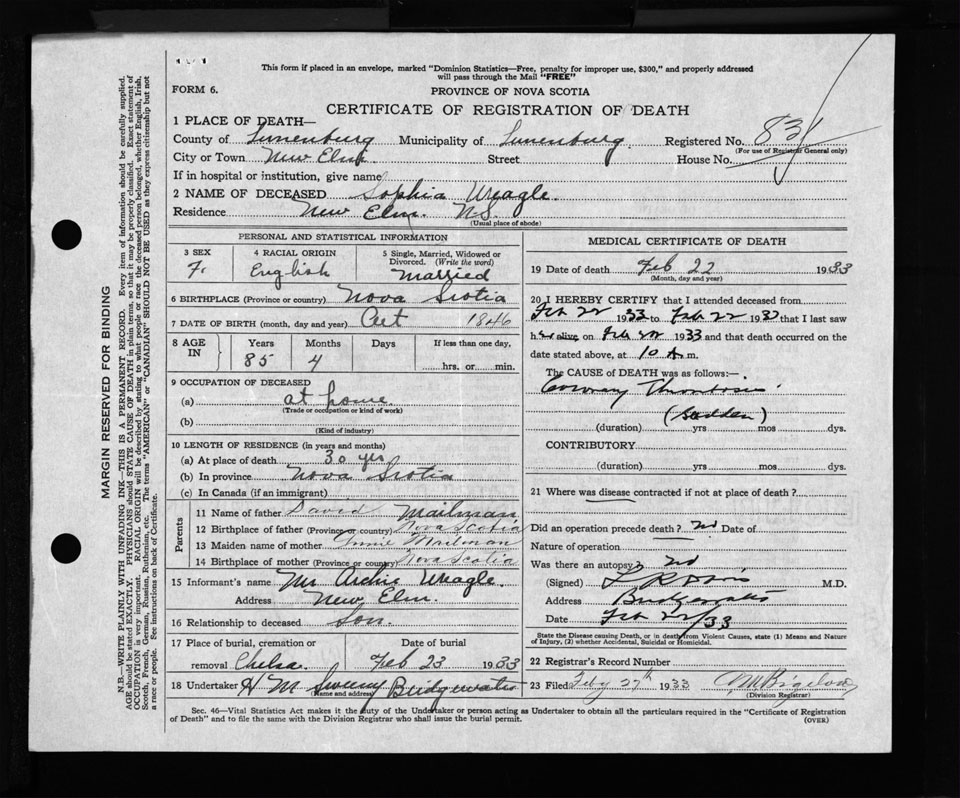 This form if placed in an envelope, marked "Dominion Statistics—Free, penalty for improper use, $300," and properly addressed
will pass through the Mail "FREE"
FORM 6.
PROVINCE OF NOVA SCOTIA
CERTIFICATE OF REGISTRATION OF DEATH
1 PLACE OF DEATH—
County of Lunenburg Municipality of Lunenburg Registered No. 831
(For use of Registrar General only)
City or Town New Elm Street House No.
If in hospital or institution, give name
2 NAME OF DECEASED Sophia Weagle.
Residence New Elm. N.S.
(Usual place of abode)
PERSONAL AND STATISTICAL INFORMATION
3 SEX 4 RACIAL ORIGIN 5 Single, Married, Widowed or
Divorced. (Write the word)
F. English Married
6 BIRTHPLACE (Province or country) Nova Scotia
7 DATE OF BIRTH (month, day and year) Oct 1846
8 AGE IN Years Months Days If less than one day,
85 4 hrs. or min.
9 OCCUPATION OF DECEASED
(a) at home
(Trade or occupation or kind of work)
(b)
(Kind of industry)
10 LENGTH OF RESIDENCE (in years and months)
(a) At place of death 30 yrs
(b) In province Nova Scotia
(c) In Canada (if an immigrant)
Parents
11 Name of father David Mailman
12 Birthplace of father (Province or country) Nova Scotia
13 Maiden name of mother Mailman
14 Birthplace of mother (Province or country) Nova Scotia
15 Informant's name Mr Archie Weagle.
Address New Elm.
16 Relationship to deceased Son.
17 Place of burial, cremation or Date of burial
removal Chelsea. Feb 23 1933
18 Undertaker H M Sweeny Bridgewater
Name and address
MEDICAL CERTIFICATE OF DEATH
19 Date of death Feb 22 1933
(Month, day and year)
20 I HEREBY CERTIFY that I attended deceased from
Feb 22 1933 to Feb 22 1933 that I last saw
her alive, on Feb 22 1933 and that death occurred on the
date stated above, at 10 A m.
The CAUSE OF DEATH was as follows:—
Coronary Thrombosis
(Sudden)
(duration) yrs mos dys.
CONTRIBUTORY
(duration) yrs mos dys.
21 Where was disease contracted if not at place of death?
Did an operation precede death? no Date of
Nature of operation
Was there an autopsy? no
(Signed) M.D.
Address Bridgewater
Date Feb 22/33
State the Disease causing Death, or in death from Violent Causes, state (1) Means and Nature
of Injury, (2) whether Accidental, Suicidal or Homicidal.
22 Registrar's Record Number
23 Filed Feby 27th 1933 Bigelow
(Division Registrar)
Sec. 46—Vital Statistics Act makes it the duty of the Undertaker or person acting as Undertaker to obtain all the particulars required in the "Certificate of Registration
of Death" and to file the same with the Division Registrar who shall issue the burial permit.
(OVER)
MARGIN RESERVED FOR BINDING
N.B.—WRITE PLAINLY WITH UNFADING INK—THIS IS A PERMANENT RECORD. Every item of information should be carefully supplied.
AGE should be stated EXACTLY. PHYSICIANS should STATE CAUSE OF DEATH in plain terms, so that it may be properly classified. Exact statement of
OCCUPATION is very important. RACIAL ORIGIN will be described by stating to what people or race the deceased person belonged, whether English, Irish,
Scotch, French, German, Russian, Ruthenian, etc. The terms "AMERICAN" or "CANADIAN" SHOULD NOT BE USED as they express citizenship but not
a race or people. See instructions on back of Certificate.